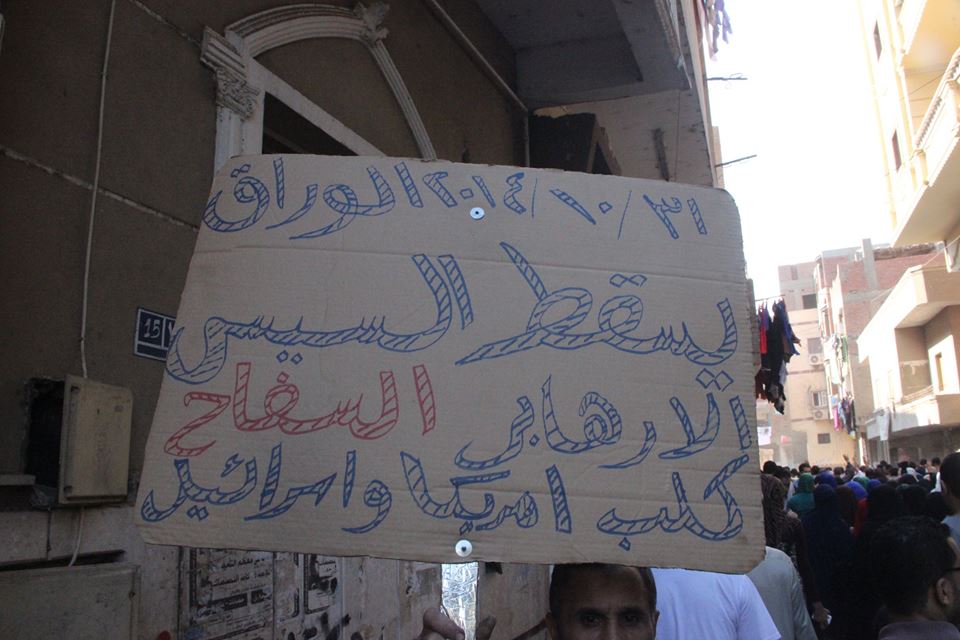 ٣١/١٠/٢٠١٤ الوراق
يسقط السيسى
الارهابى السفاح
كلب امريكا واسرائيل
15